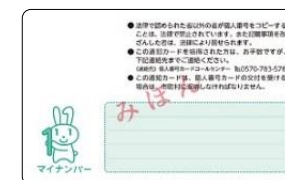 ● 法律で認められた者以外の者が個人番号をコピーする
ことは、法律で禁止されています。また記載事項を改
ざんした者は、法律により罰せられます。
● この通知カードを拾得された方は、お手数ですが、
下記連絡先までご連絡ください。
(連絡先) 個人番号カードコールセンター ℡0570-783-578
● この通知カードは、個人番号カードの交付を受ける
場合は、市町村に返納しなければなりません。
みほん
マイナンバー